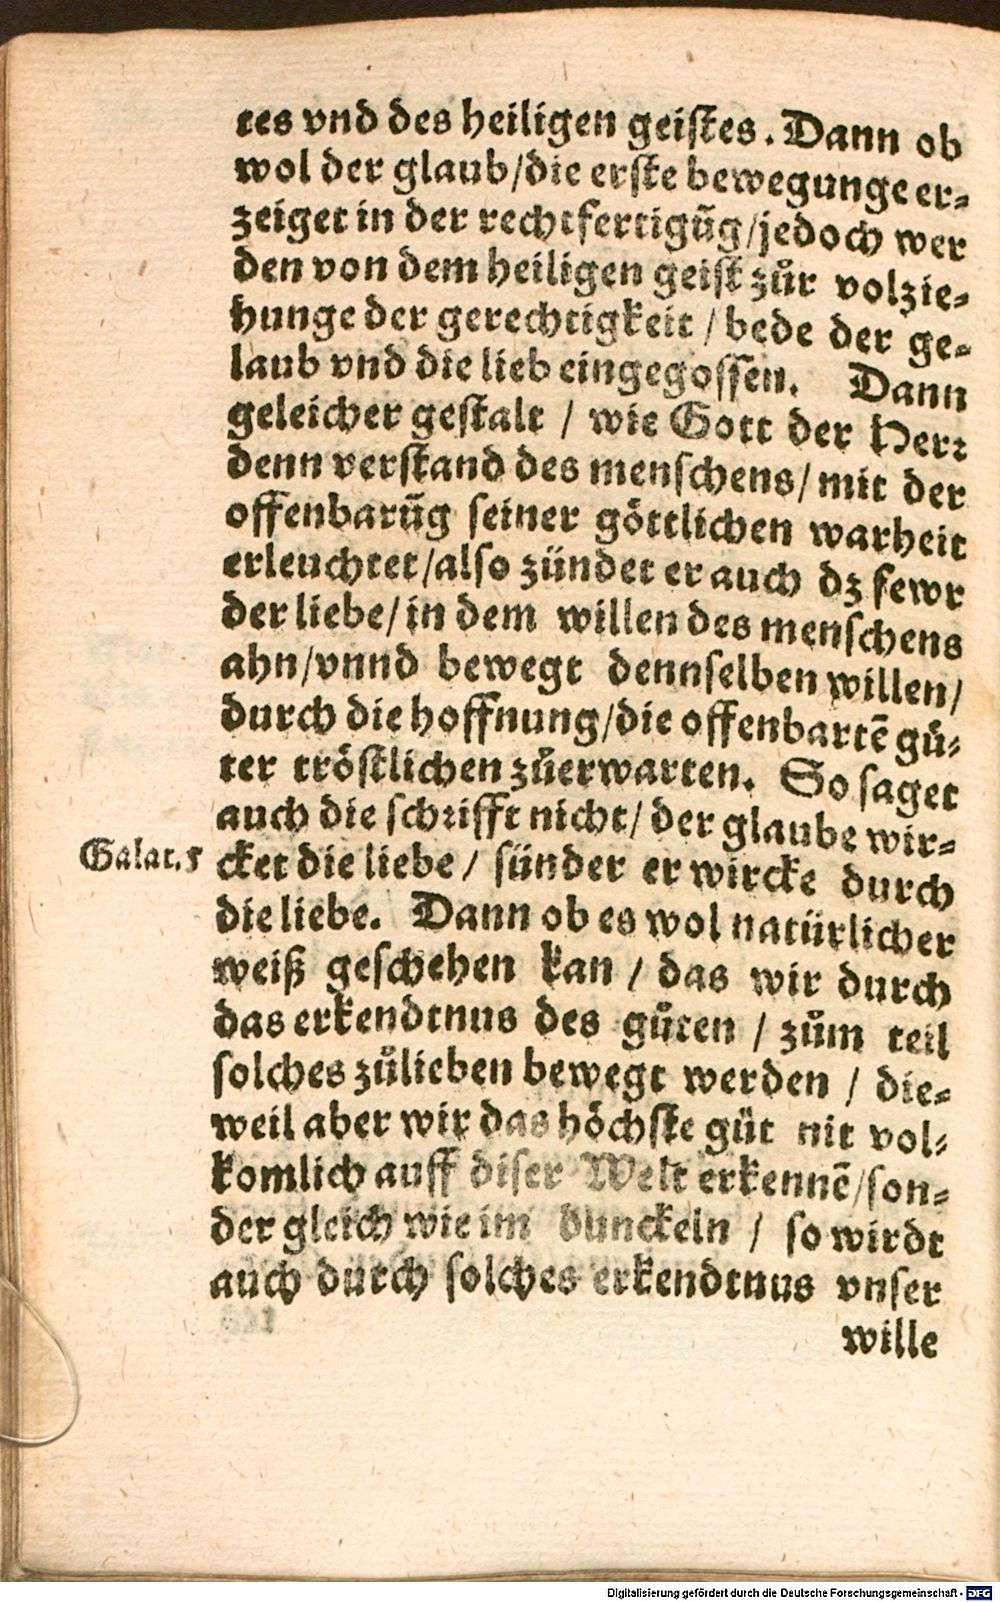 tes vnd des heiligen geistes. Dann ob
wol der glaub/die erste bewegunge er-
zeiget in der rechtfertigũg/jedoch wer
den von dem heiligen geist zůr volzie-
hunge der gerechtigkeit / bede der ge-
laub vnd die lieb eingegossen. Dann
geleicher gestalt / wie Gott der Herr
denn verstand des menschens/ mit der
offenbarũg seiner göttlichen warheit
erleuchtet/also zündet er auch dz fewr
der liebe/in dem willen des menschens
ahn/vnnd bewegt dennselben willen/
durch die hoffnung/die offenbartẽ gů-
ter tröstlichen zůerwarten. So saget
auch die schrifft nicht/ der glaube wir-
Galat.5 cket die liebe / sünder er wircke durch
die liebe. Dann ob es wol natürlicher
weiß geschehen kan / das wir durch
das erkendtnus des gůten / zům teil
solches zůlieben bewegt werden / die-
weil aber wir das höchste gůt nit vol-
komlich auff diser Welt erkennẽ/son-
der gleich wie im dunckeln / so wirdt
auch durch solches erkendtnus vnser
wille
Digitalisierung gefördert durch die Deutsche Forschungsgemeinschaft - DFG